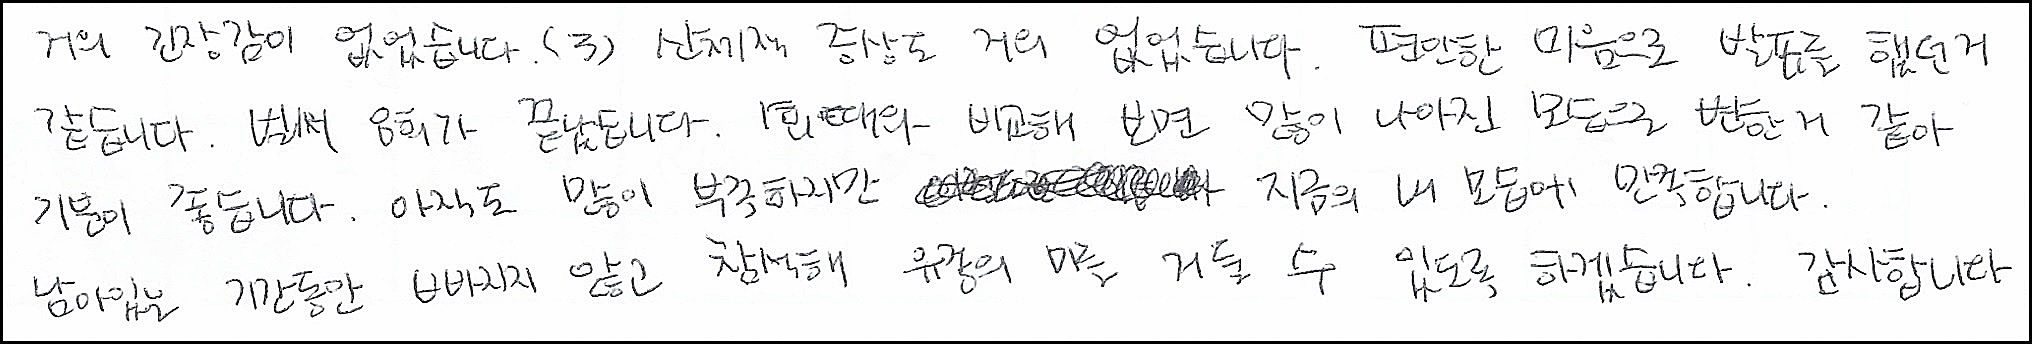 거의 긴장감이 없었습니다.(3) 신체적 증상도 거의 없었습니다. 편안한 마음으로 발표를 했던거
같습니다. 벌써 8회가 끝났습니다. 1회때와 비교해 보면 많이 나아진 모습으로 변한거 같아
기분이 좋습니다. 아직도 많이 부족하지만 지금의 내 모습에 만족합니다.
남아있는 기간동안 빠지지 않고 참석해 유종의 미를 거둘 수 있도록 하겠습니다. 감사합니다